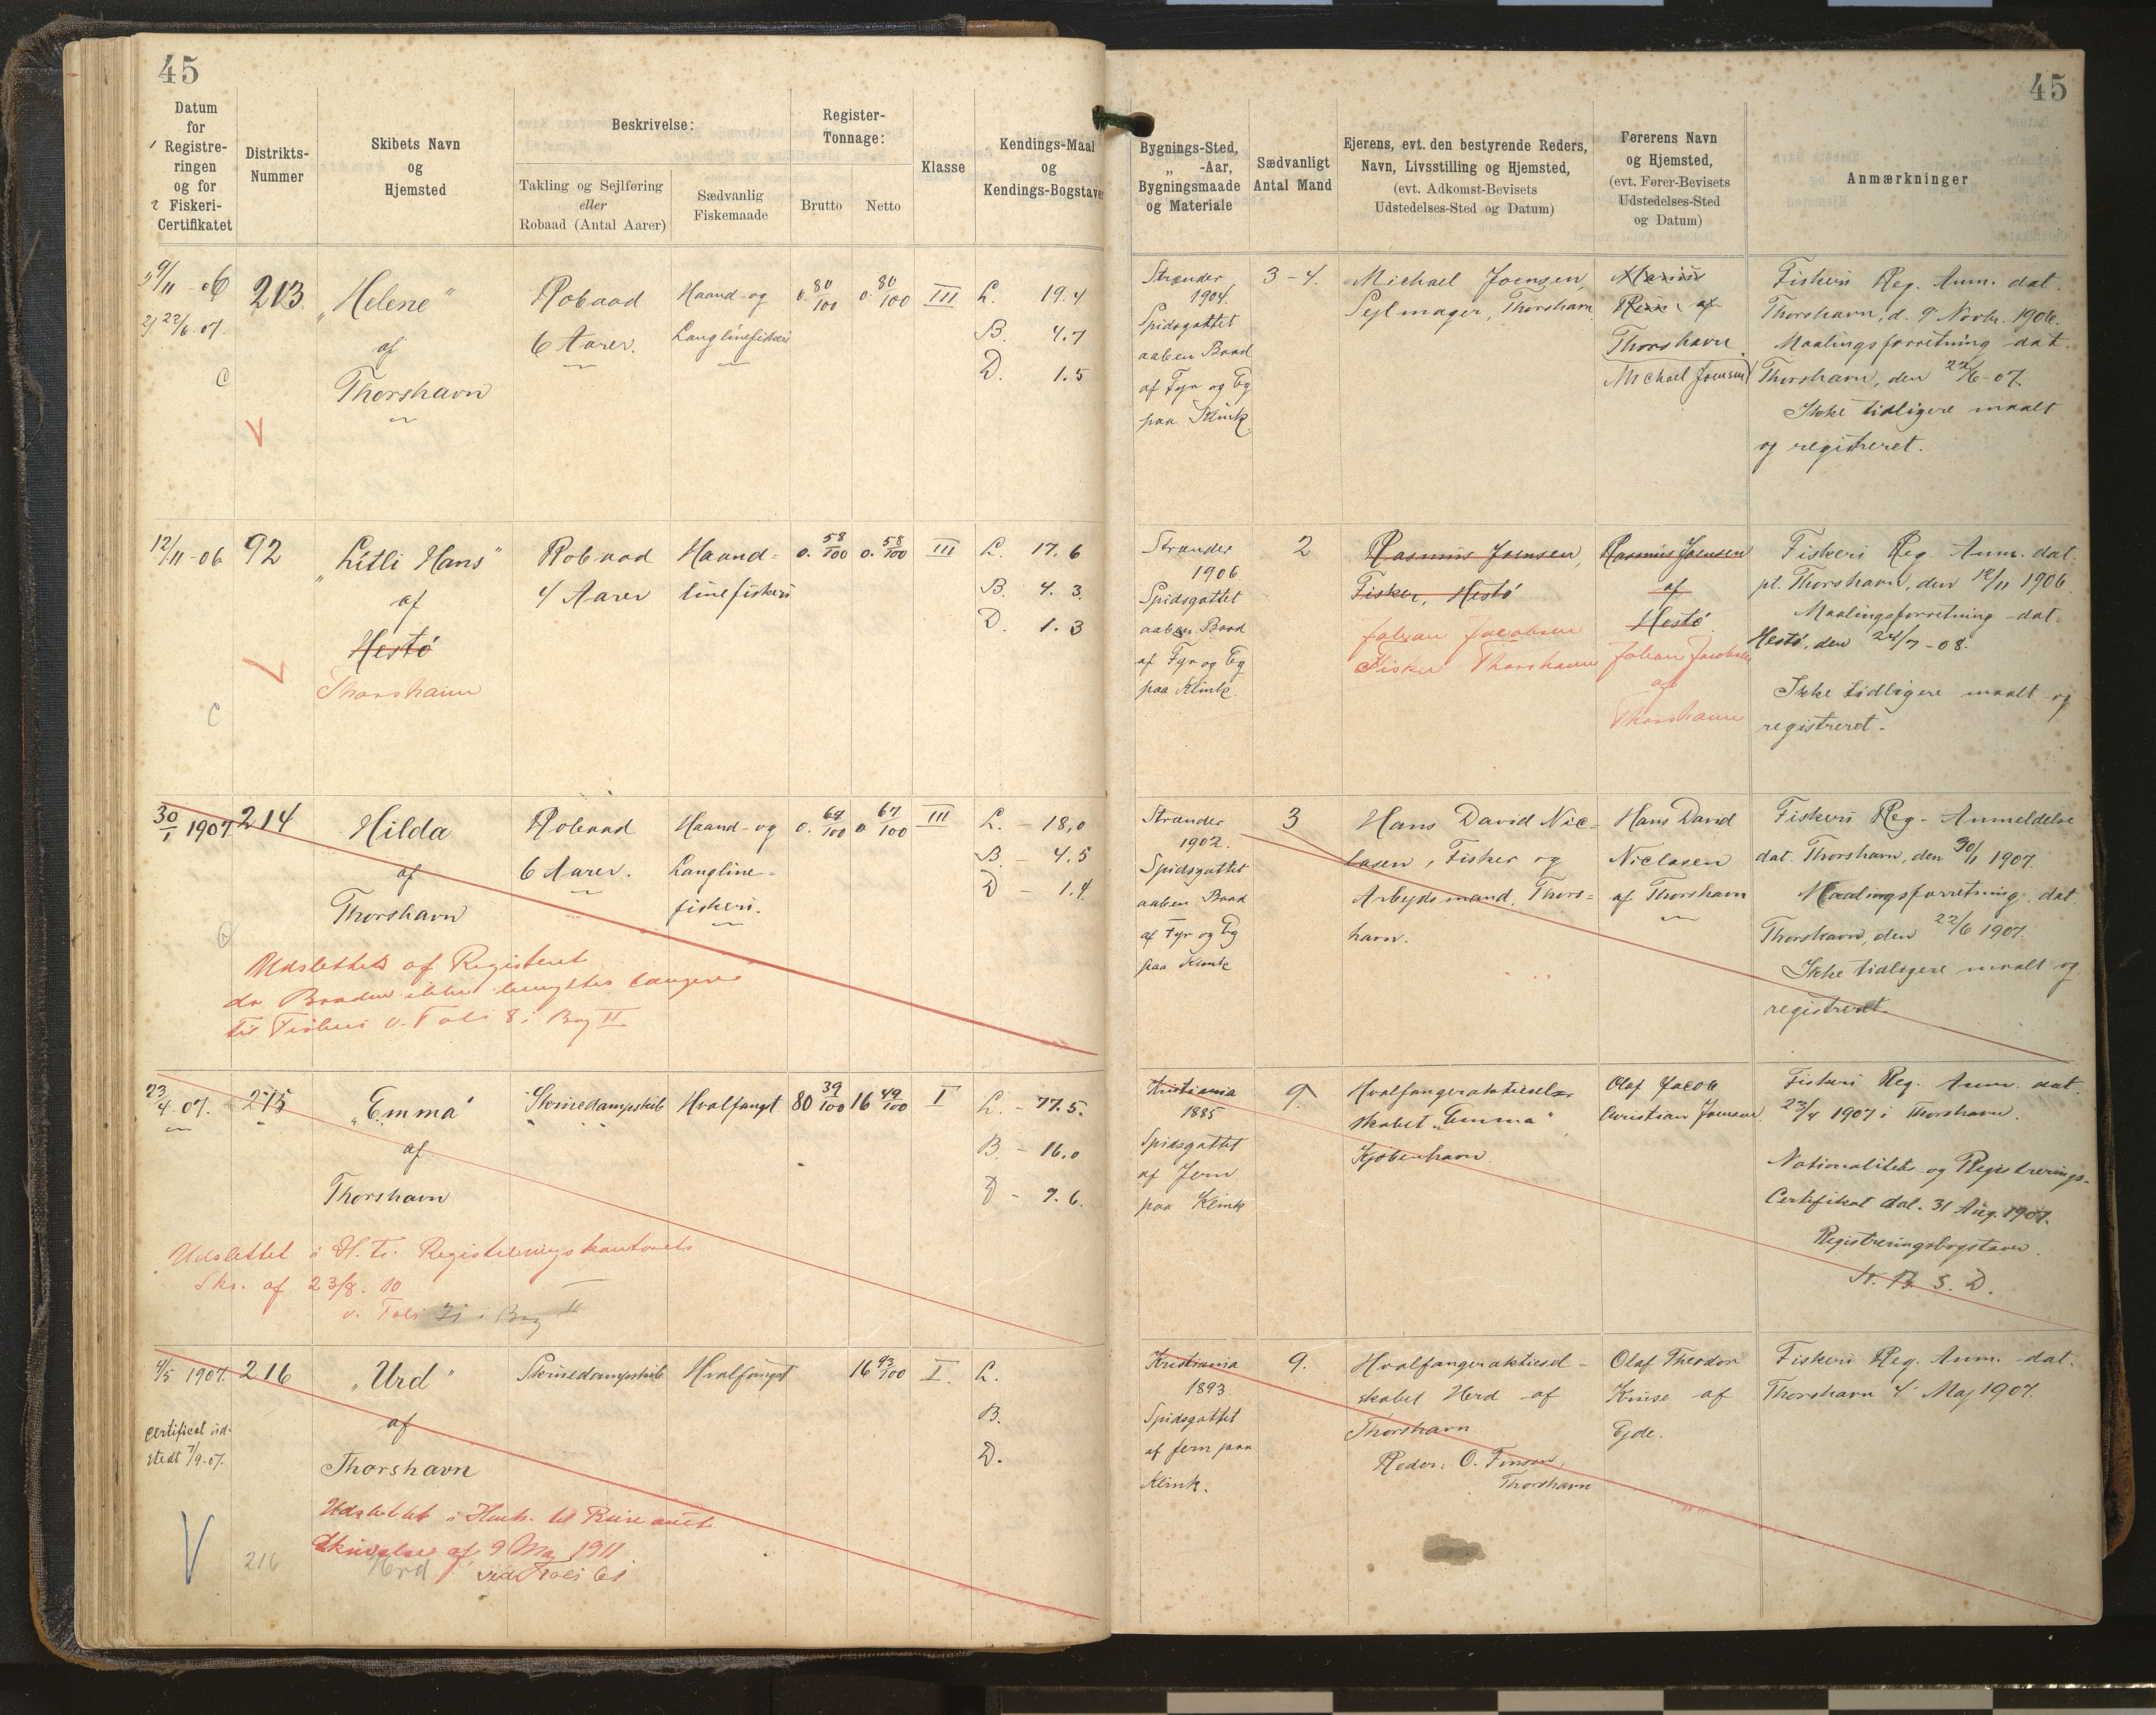 45
45
Datum
for
1 Registre-
ringen
og for
2 Fiskeri-
Certifikatet
Distrikts-
Nummer
Skibets Navn
og
Hjemsted
Beskrivelse:
Takling og Sejlføring
eller
Robaad (Antal Aarer)
Sædvanlig
Fiskemaade
Register-
Tonnage:
Brutto
Netto
Klasse
Kendings-Maal
og
Kendings-Bogstaver
Bygnings-Sted,
„ -Aar,
Bygningsmaade
og Materiale
Sædvanligt
Antal Mand
Ejerens, evt. den bestyrende Reders,
Navn, Livsstilling og Hjemsted,
(evt. Adkomst-Bevisets
Udstedelses-Sted og Datum)
Førerens Navn
og Hjemsted,
(evt. Fører-Bevisets
Udstedelses-Sted
og Datum)
Anmærkninger
1) 9/11 - 06
2) 22/6 - 07.
C
213
„Helene"
af
Thorshavn
Robaad
6 Aarer.
Haand- og
Langlinefiskeri
0. 80/100
0. 80/100
III
L. 19.4
B. 4.7
D. 1.5
Strænder
1904.
Spidsgattet
aaben Baad
af Fyr og Eg
paa Klink.
3-4.
Michael Joensen,
Sejlmager, Thorshavn
af
Thorshavn.
Michael Joensen
Fiskeri Reg. Anm. dat.
Thorshavn, d. 9 Novbr. 1906.
Maalingsforretning dat.
Thorshavn, den 22/6-07.
Ikke tidligere maalt
og registreret.
12/11 - 06
C
92
„Litli Hans"
af
Hestø
Thorshavn
Robaad
4 Aarer
Haand-
linefiskeri
0. 58/100
0. 58/100
III
L. 17.6
B. 4.3
D. 1.3
Strænder
1906.
Spidsgattet
aaben Baad
af Fyr og Eg
paa Klink.
2
Rasmus Joensen,
Fisker, Hestø
Johan Jacobsen
Fisker Thorshavn
Rasmus Joensen
af
Hestø
Johan Jacobsen
af
Thorshavn
Fiskeri Reg Anm. dat.
pt. Thorshavn, den 12/11 1906
Maalingsforretning dat.
Hestø, den 24/7-08.
Ikke tidligere maalt og
registreret.
30/1 1907.
214
Hilda
af
Thorshavn
Robaad
6 Aarer.
Haand- og
Langline-
fiskeri.
0. 67/100
0. 67/100
III
L. - 18,0
B. - 4.5
D - 1.4
Udslettet af Registeret
da Baaden ikke benyttes længere
til Fiskeri v. Folio 8 i Bog II
Strænder
1902.
Spidsgattet
aaben Baad
af Fyr og Eg
paa Klink
3
Hans David Nic-
lasen, Fisker og
Arbejdsmand, Thors-
havn.
Hans David
Niclasen
af Thorshavn
Fiskeri Reg. Anmeldelse
dat. Thorshavn, den 30/1 1907.
Maalingsforretning dat.
Thorshavn, den 22/6 1907.
Ikke tidligere maalt og
registreret.
23/4-07.
215
„Emma"
af
Thorshavn
Skruedampskib
Hvalfangst
80 39/100
16 49/100
I
L. - 77.5.
B. - 16.0
D - 9.6.
Udslettet i H. t. Registreringskontorets
Skr. af 23/8. 10
v. Folio 21 i Bog II
Kristiania
1885
Spidsgattet
af Jern
paa Klink
9.
Hvalfangeraktiesel-
skabet „Emma"
Kjøbenhavn
Olaf Jacob
Christian Joensen
Fiskeri Reg. Anm. dat.
23/4 1907 i Thorshavn.
Nationalitets og Registrerings-
Certifikat dat. 31 Aug. 1901.
Registreringsbogstaver
N. B. S. D.
4/5 1907.
Certificat ud-
stedt 7/9-07.
216
„Urd"
af
Thorshavn
Skruedampskib
Hvalfangst
16 93/100
I.
L.
B.
D.
Udslettet i Henh. til Bureauets
Skrivelse af 9 Maj 1911
vide Folio 61
216
Urd
Kristiania
1893.
Spidsgattet
af Jern paa
Klink.
9.
Hvalfangeraktiesel-
skabet Urd af
Thorshavn
Reder: O. Finsen,
Thorshavn
Olaf Theodor
Kruse af
Ejde.
Fiskeri Reg. Anm. dat.
Thorshavn 4' Maj 1907.